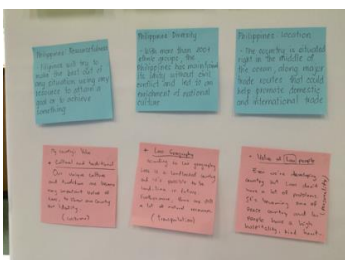 Philippines: Resourcefulness
- Filipinos will try to
make the best out of
any situation using any
resource to attain a
goal or to achieve
something
Philippines: Diversity
- With more than 200+
ethnic groups, the
Philippines has maintained
its unity without civil
conflict and led to an
enrichment of national
culture
Philippines: Location
- The country is situated
right in the middle of
the ocean, along major
trade routes that could
help promote domestic
and international trade
My country: Laos
* Cultural and traditional
Our unique culture
and tradition are become
very important value of
Laos, to show our country
our identity.
(culture)
* Laos Geography
According to Laos geography
Laos is a landlocked country
and it's possible to be
land-link in future,
furthermore, there are still
a lot of natural resources
* Value of Laos people
Even we're developing
country but Laos don't
have a lot of problems
It's becoming one of
country and Lao
people have a high
hospitality, kind heart.